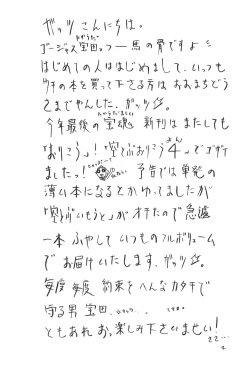 ガッツこんにちは。
ゴージャス宝田。つー馬の骨ですよ
はじめての人ははじめまして。いつも
ウチの本を買って下さる方は おまちどう
さまでやんした。ガッツ☆。
今年最後の宝魂 新刊はまたしても
「おりこう」!「空とぶおりこう4」でゴザイ
ましたっ!
予告では単発の
薄い本になるとかゆってましたが
「空とぶいもうと」がオチたので急遽
一本ふやして いつものフルボリューム
で お届けいたします。ガッツ☆。
毎度毎度 約束をヘンなカタチで
守る男 宝田。
ともあれお楽しみ下さいませい!